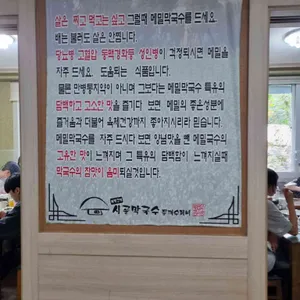 살은 찌고 먹고는 싶고 그럴때 메밀막국수를 드세요.
배는 불러도 살은 안찝니다.
당뇨병 고혈압 동맥경화등 성인병이 걱정되시면 메밀을
자주 드세요. 도움되는 식품입니다.
물론 만병통치약이 아니며 그보다는 메밀막국수 특유의
담백하고 고소한 맛을 즐기다 보면 메밀의 좋은성분에
즐거움과 더불어 육체건강까지 좋아지시리라 믿습니다.
메밀막국수를 자주 드시다 보면 양념맛을 뺀 메밀막국수의
고유한 맛이 느껴지며 그 특유의 담백함이 느껴지실때
막국수의 참맛이 음미되실것입니다.
시골막국수